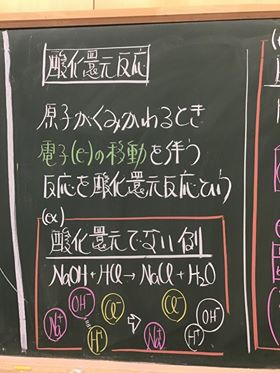 酸化還元反応
原子がくみかわるとき
電子(e⁻)の移動を伴う
反応を酸化還元反応という
(ex)
酸化還元でない例
NaOH + HCl → NaCl + H₂O
OH⁻ Cl⁻ ⇨ Cl⁻ OH⁻
Na⁺ H⁺ Na⁺ H⁺